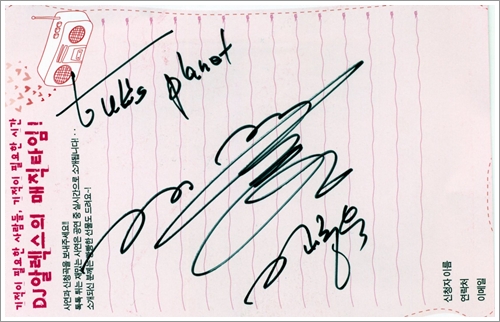 기적이 필요한 사람들, 기적이 필요한 시간
DJ알렉스의 매직타임!
사연과 신청곡을 보내주세요!!
톡톡 튀는 재밌는 사연은 공연 중 실시간으로 소개됩니다!··
소개되신 분께는 선물도 드려요~!
신청자 이름
연락처
이메일
planet